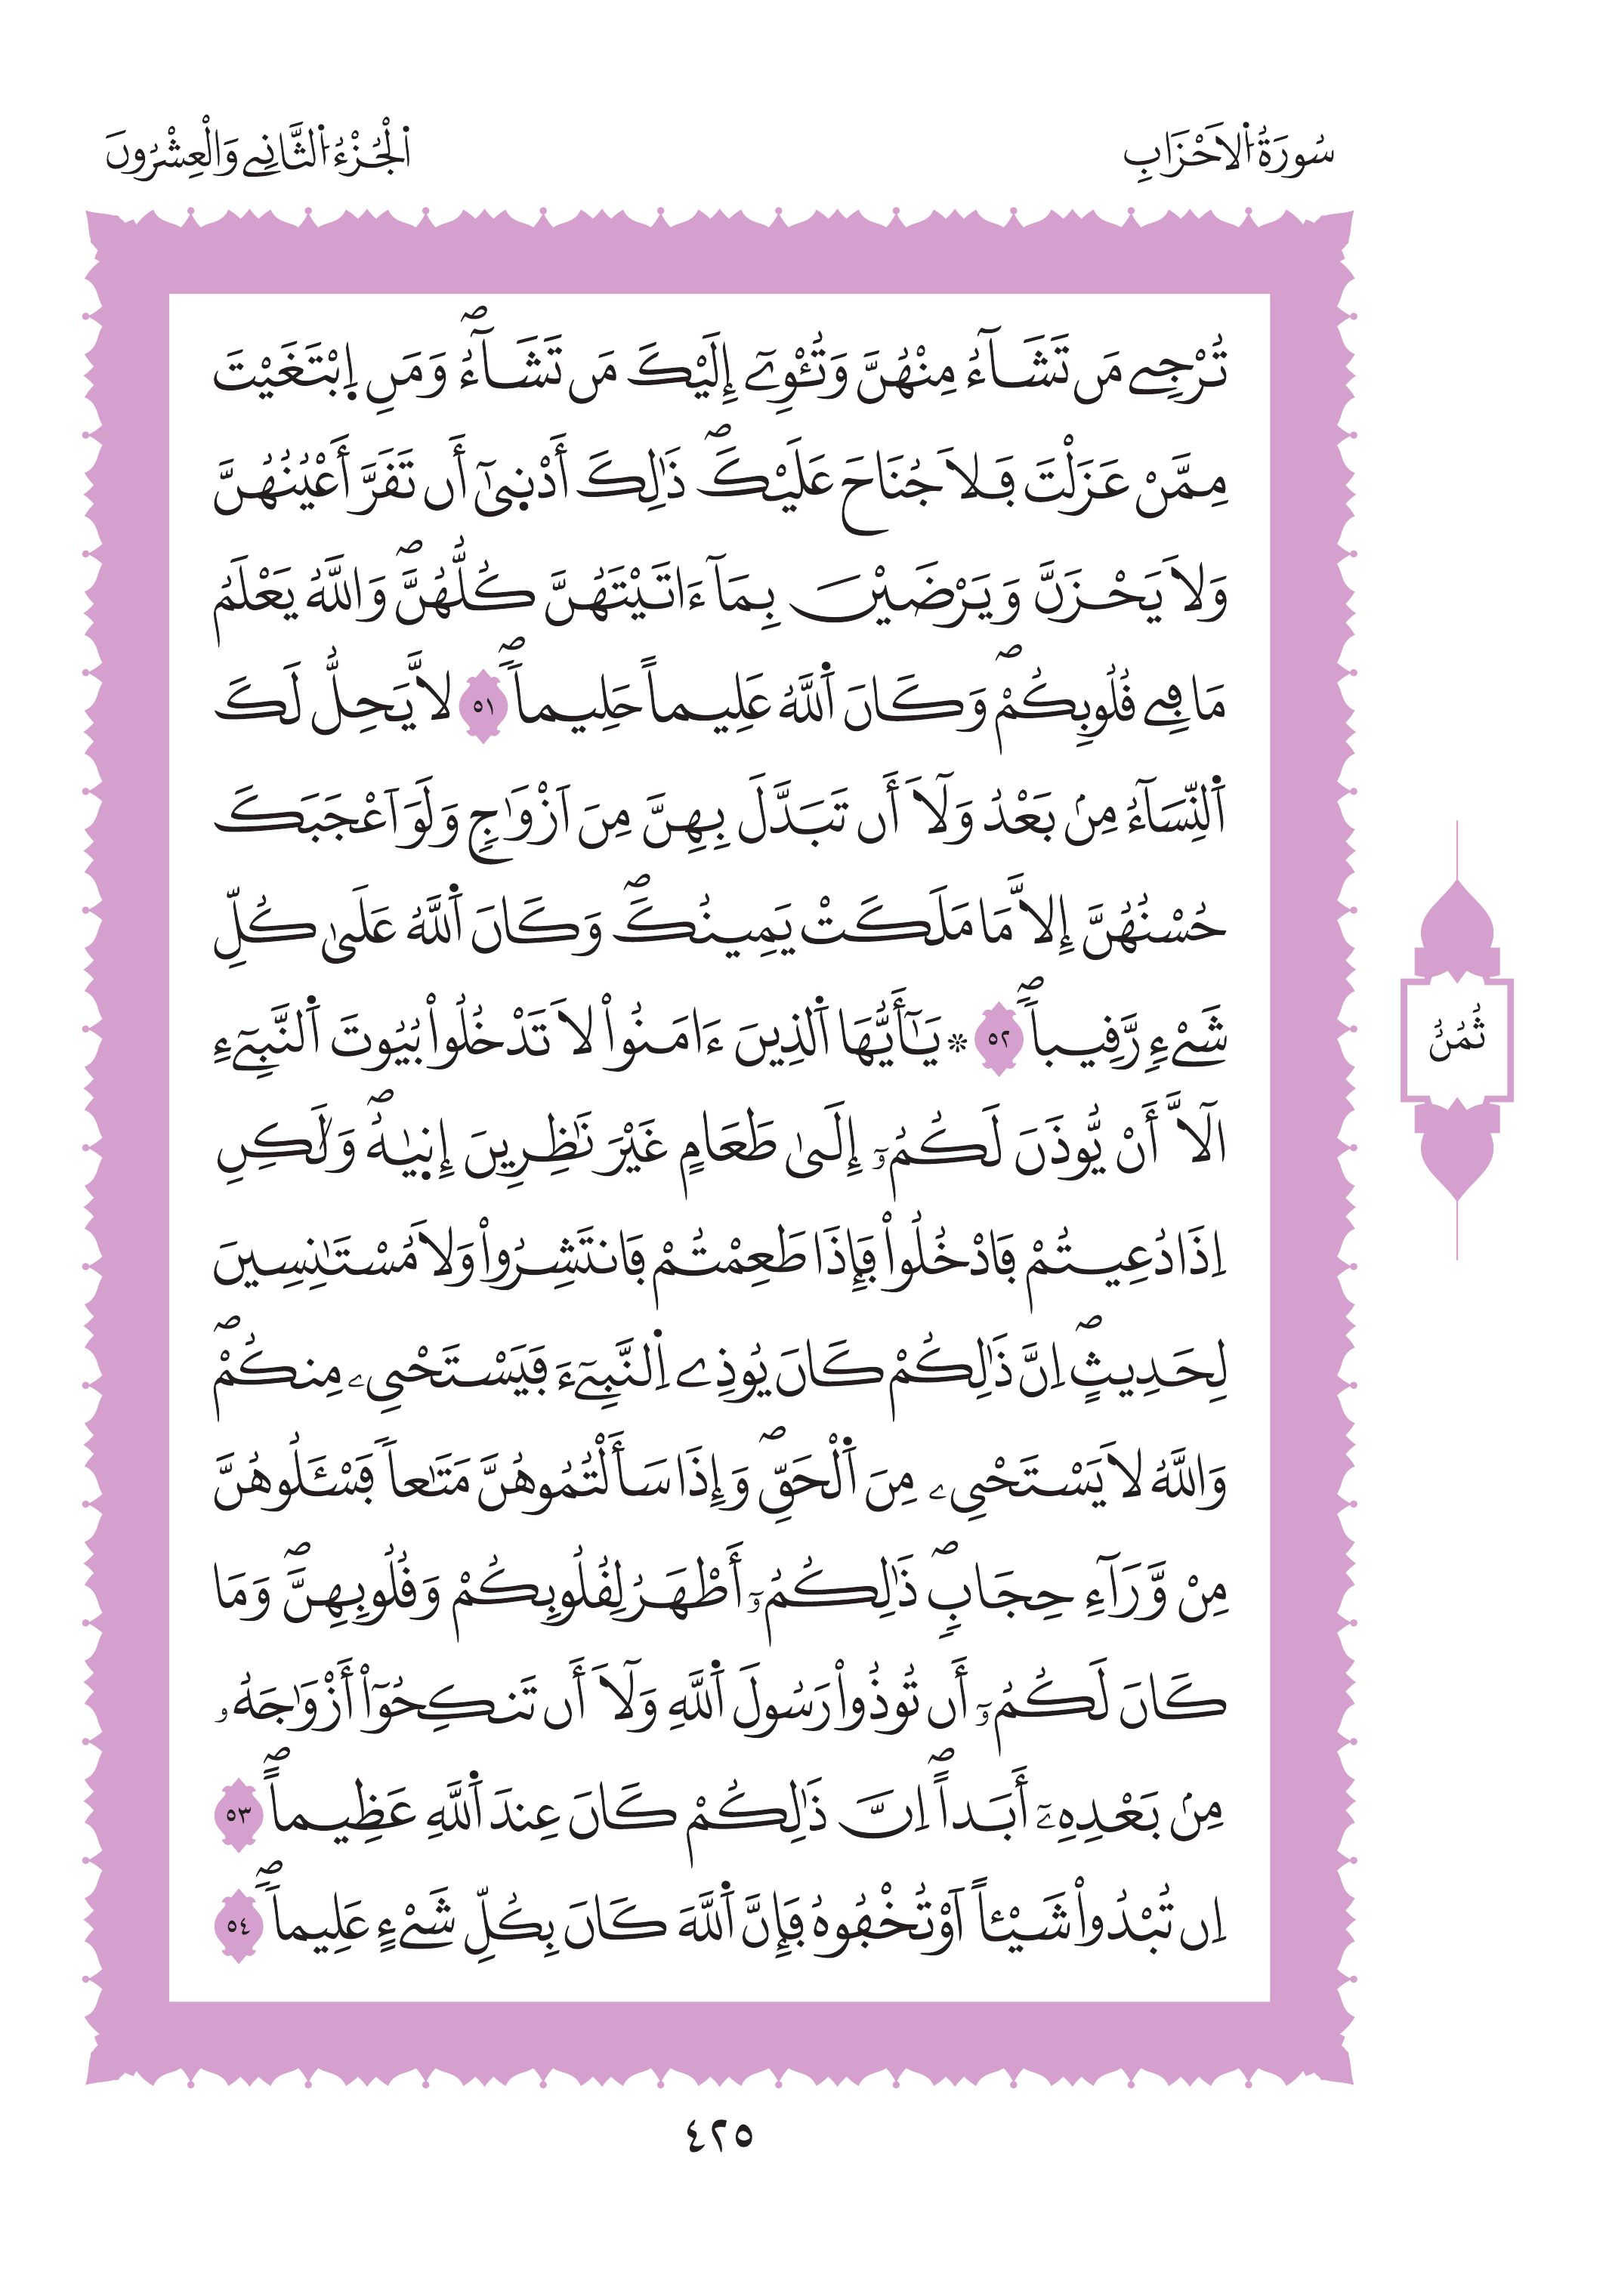 سُورَةُ الَاحْزَابِ
اَلْجُزْءُ الثَّانِے وَالْعِشْرُونَ
تُرْجِے مَن تَشَآءُ مِنْهُنَّ وَتُـْٔوِےٓ إِلَيْكَ مَن تَشَآءُۖ وَمَنِ اِ۪بْتَغَيْتَ
مِمَّنْ عَزَلْتَ فَلَا جُنَاحَ عَلَيْكَۖ ذَٰلِكَ أَدْن۪ىٰٓ أَن تَقَرَّ أَعْيُنُهُنَّ
وَلَا يَحْزَنَّ وَيَرْضَيْنَ بِمَآ ءَاتَيْتَهُنَّ كُلُّهُنَّۖ وَاللَّهُ يَعْلَمُ
مَا فِے قُلُوبِكُمْۖ وَكَانَ اَ۬للَّهُ عَلِيماً حَلِيماًۖ ٥١ لَّا يَحِلُّ لَكَ
اَ۬لنِّسَآءُ مِنۢ بَعْدُ وَلَآ أَن تَبَدَّلَ بِهِنَّ مِنَ اَزْوَٰجٖ وَلَوَ اَعْجَبَكَ
حُسْنُهُنَّ إِلَّا مَا مَلَكَتْ يَمِينُكَۖ وَكَانَ اَ۬للَّهُ عَلَىٰ كُلِّ
شَےْءٖ رَّقِيباًۖ ٥٢ ۞ يَٰٓأَيُّهَا اَ۬لذِينَ ءَامَنُواْ لَا تَدْخُلُواْ بُيُوتَ اَ۬لنَّبِےٓءِ
اِ۪لَّآ أَنْ يُّوذَنَ لَكُمُۥٓ إِلَىٰ طَعَامٍ غَيْرَ نَٰظِرِينَ إِن۪يٰهُۖ وَلَٰكِنِ
اِذَا دُعِيتُمْ فَادْخُلُواْ فَإِذَا طَعِمْتُمْ فَانتَشِرُواْ وَلَا مُسْتَٰنِسِينَ
لِحَدِيثٍۖ اِنَّ ذَٰلِكُمْ كَانَ يُوذِے اِ۬لنَّبِےٓءَ فَيَسْتَحْيِۦ مِنكُمْۖ
وَاللَّهُ لَا يَسْتَحْيِۦ مِنَ اَ۬لْحَقِّۖ وَإِذَا سَأَلْتُمُوهُنَّ مَتَٰعاً فَسْـَٔلُوهُنَّ
مِنْ وَّرَآءِ حِجَابٖۖ ذَٰلِكُمُۥٓ أَطْهَرُ لِقُلُوبِكُمْ وَقُلُوبِهِنَّۖ وَمَا
كَانَ لَكُمُۥٓ أَن تُوذُواْ رَسُولَ اَ۬للَّهِ وَلَآ أَن تَنكِحُوٓاْ أَزْوَٰجَهُۥ
مِنۢ بَعْدِهِۦٓ أَبَداًۖ اِنَّ ذَٰلِكُمْ كَانَ عِندَ اَ۬للَّهِ عَظِيماًۖ ٥٣
اِن تُبْدُواْ شَيْـٔاً اَوْ تُخْفُوهُ فَإِنَّ اَ۬للَّهَ كَانَ بِكُلِّ شَےْءٍ عَلِيماًۖ ٥٤
ثُمُنُ
٤٢٥